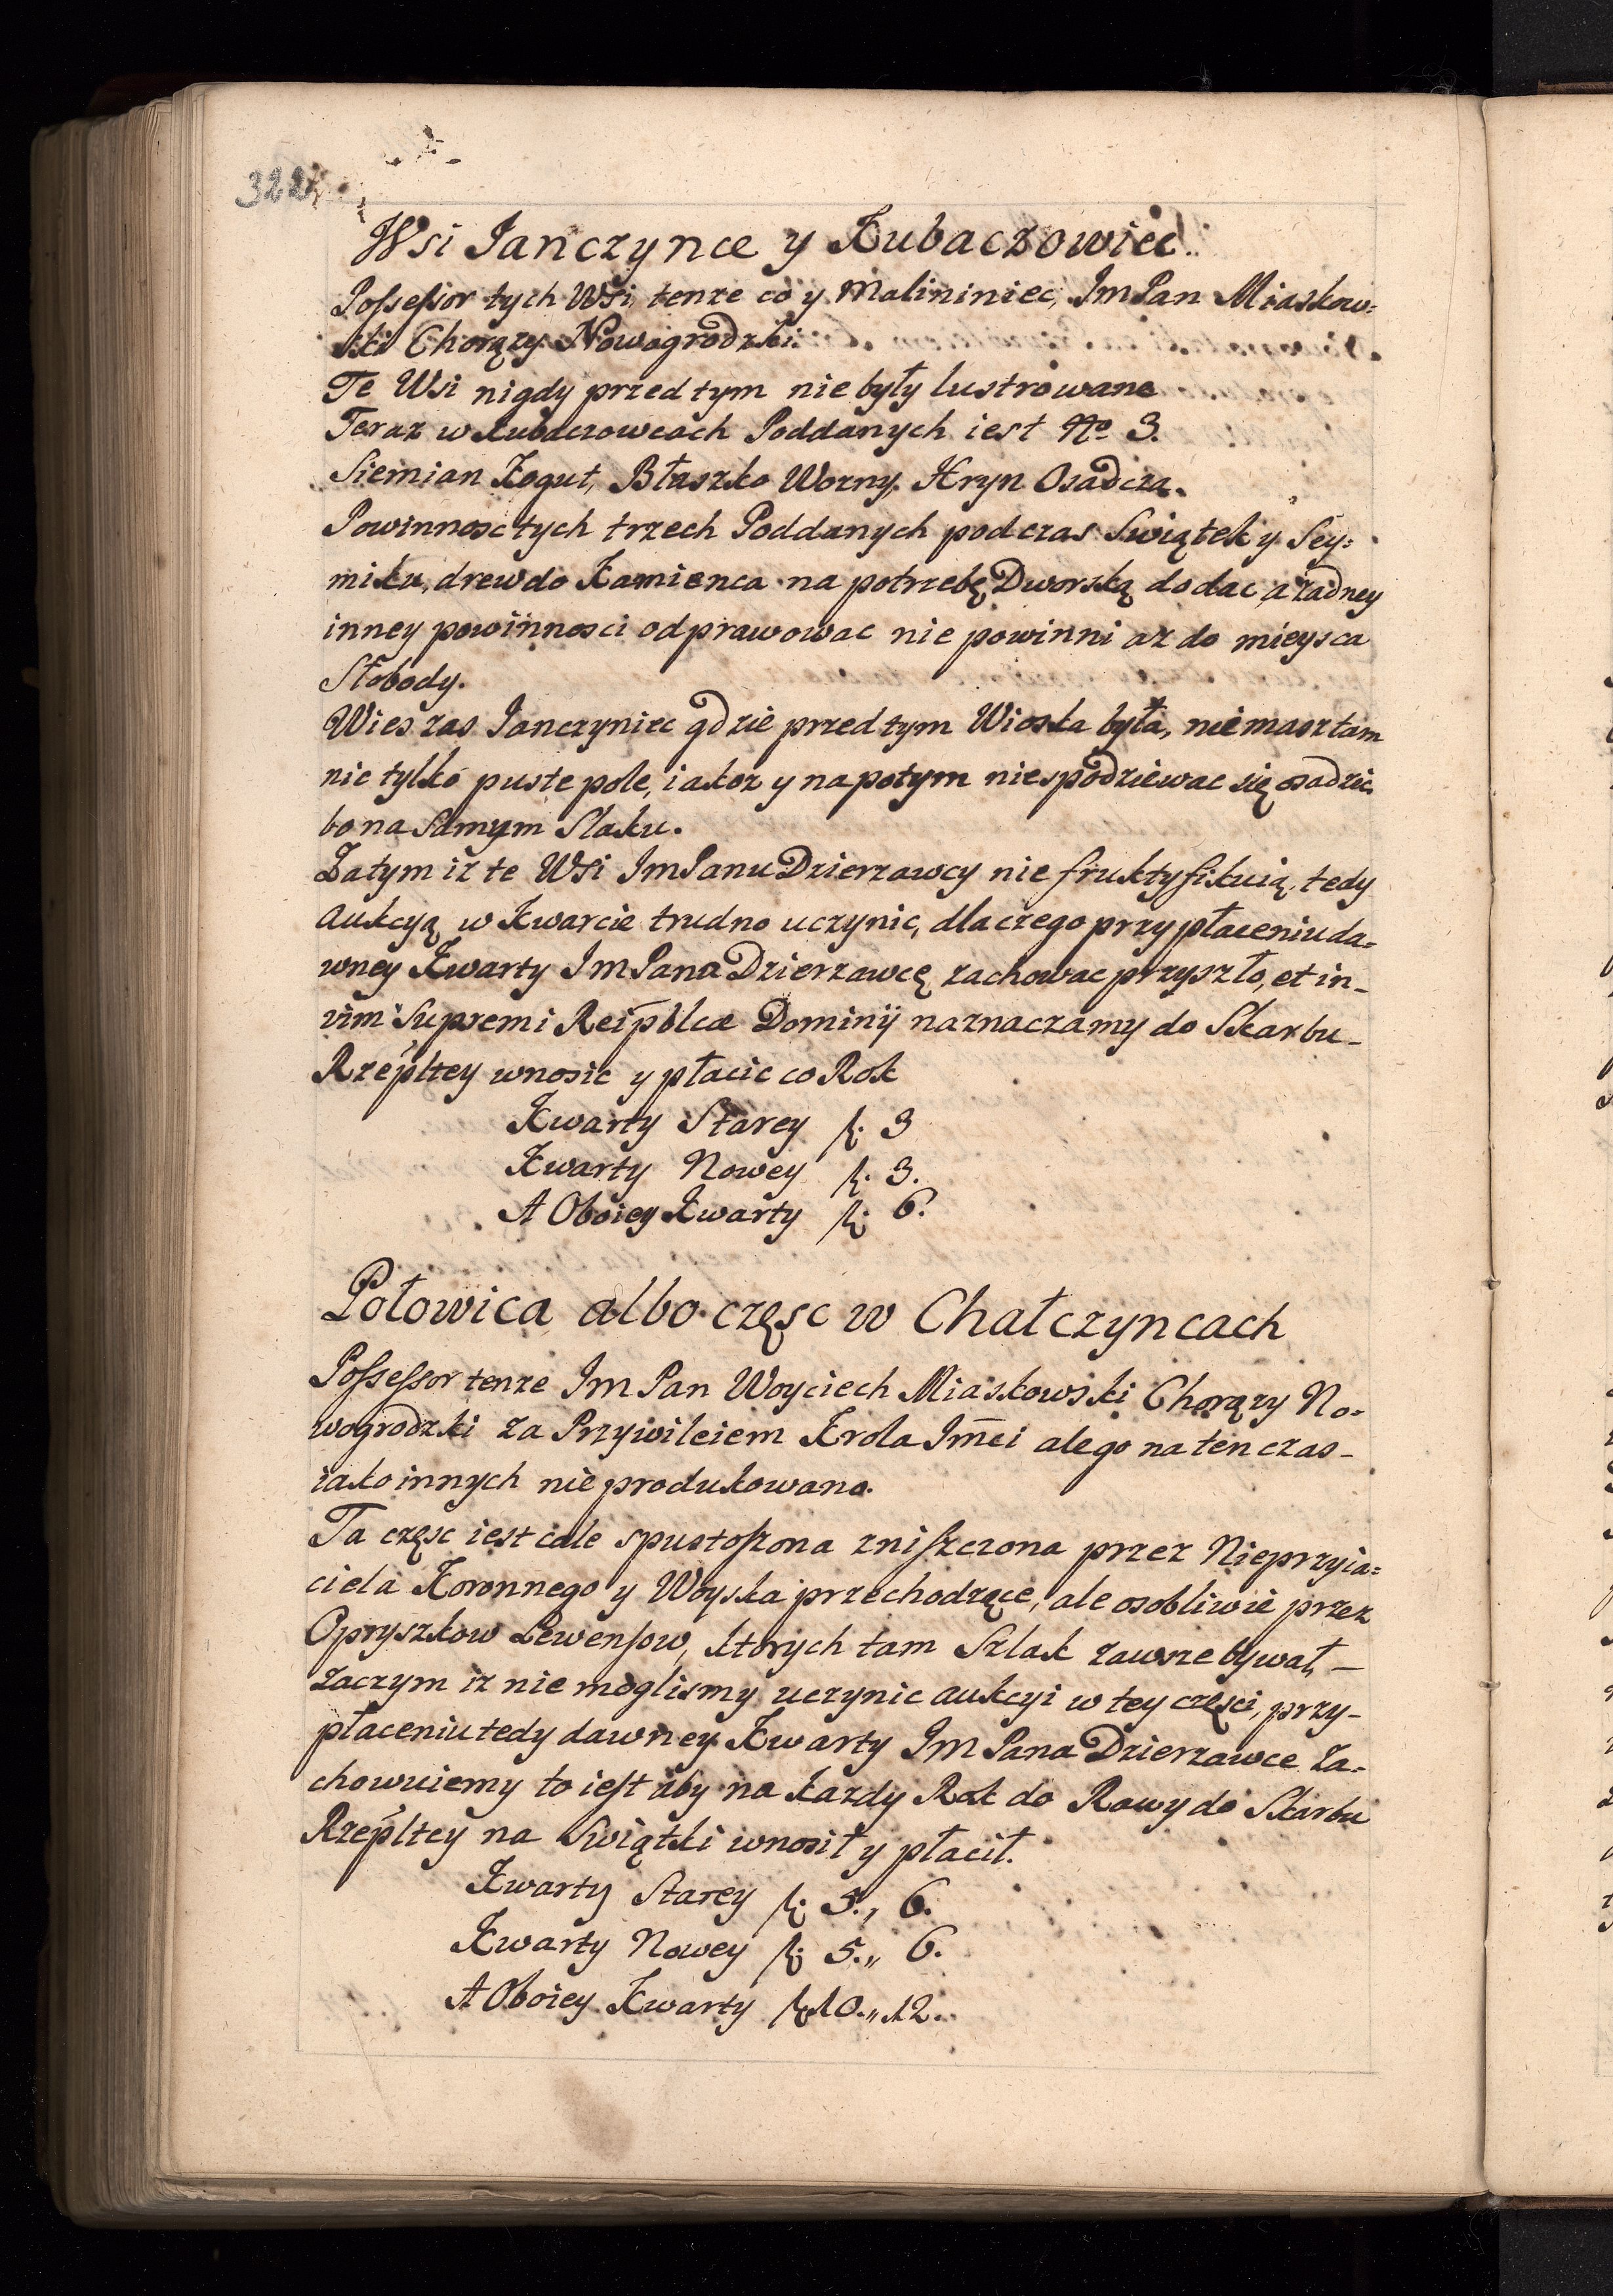 322
Wsi Janczynce y Kubaczowiec.
Possessor tych Wsi, tenze co y Malininiec, ImPan Miaskow=
ski Chorązy Nowogrodzki.
Te Wsi nigdy przed tym nie były lustrowane
Teraz w Kubaczowcach Poddanych iest No 3.
Siemian Kogut, Błaszko Wozny, Hryn Osadcza.
Powinnosc tych trzech Poddanych podczas Swiątek y Sey=
miku, drew do Kamienca na potrzebę Dworską dodac, a zadney
inney powinnosci odprawowac nie powinni az do mieysca
Słobody.
Wies zas Janczyniec gdzie przed tym Wioska była, niemasz tam
nic tylko puste pole, iakoz y napotym niespodziewac się osadzic
bo na Samym Slaku.
Zatym iz te Wsi ImPanu Dzierzawcy nie fruktyfikuią, tedy
Aukcyą w Kwarcie trudno uczynic, dlaczego przy płaceniu da=
wney Kwarty ImPana Dzierzawcę zachowac przyszło, et in-
vim Supremi Reipblcæ Dominij naznaczamy do Skarbu-
Rzepltey wnosic y płacic co Rok
Kwarty Starey f. 3
Kwarty Nowey f. 3.
A Oboiey Kwarty f. 6.
Połowica albo częsc w Chałczyncach
Possessor tenze Im Pan Woyciech Miaskowski Chorązy No=
wogrodzki za Przywileiem Krola Jmci alego na ten czas-
iako innych nie produkowano.
Ta częsc iest cale spustoszona zniszczona przez Nieprzyia=
ciela Koronnego y Woyska przechodzące, ale osobliwie przez
Opryszkow Lewensow, ktorych tam Szlak zawsze bywał, —
Zaczym iz nie moglismy uczynic aukcyi w tey częsci, przy-
płaceniu tedy dawney Kwarty ImPana Dzierzawce Za=
chowuiemy to iest aby na kazdy Rok do Rawy do Skarbu
Rzepltey na Swiątki wnosił y płacił.
Kwarty Starey f. 5., 6.
Kwarty Nowey f. 5.,, 6.
A Oboiey Kwarty f. 10.,, 12.